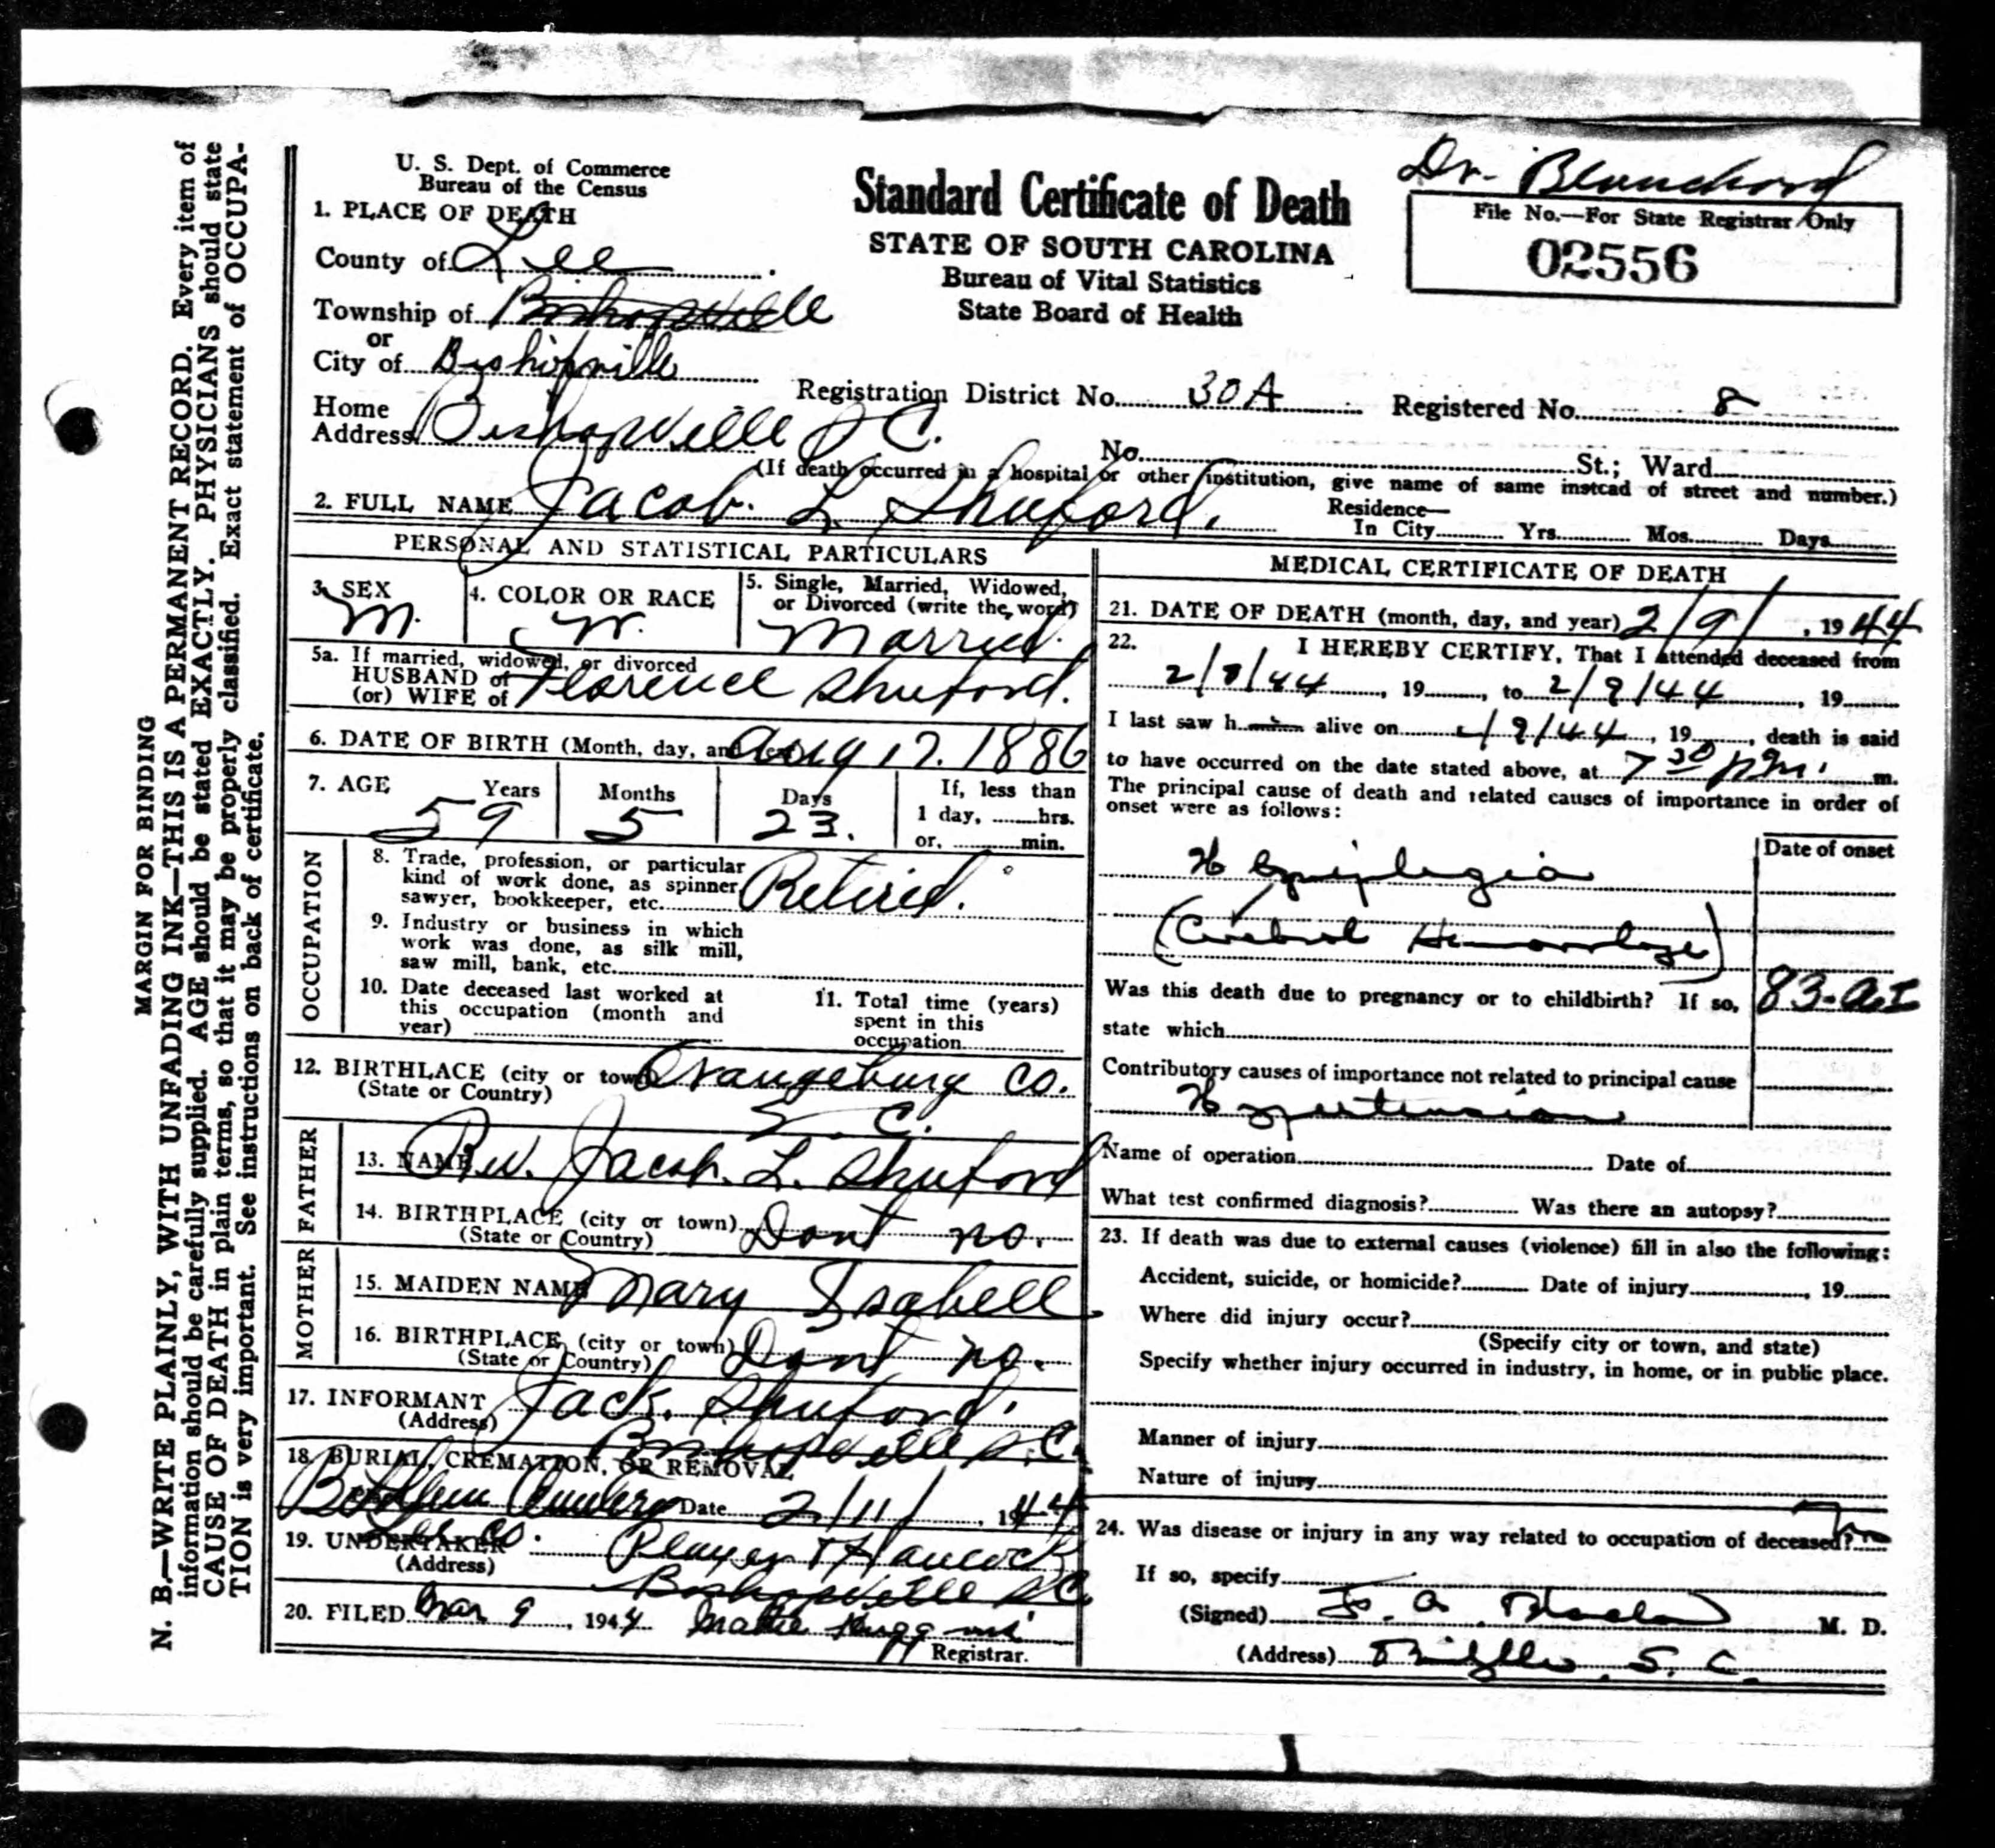 Dr. Blanchard
U. S. Dept. of Commerce
Bureau of the Census
Standard Certificate of Death
STATE OF SOUTH CAROLINA
Bureau of Vital Statistics
State Board of Health
File No.—For State Registrar Only
02556
1. PLACE OF DEATH
County of Lee
Township of Bishopville
or
City of Bishopville
Registration District No. 30A Registered No. 8
Home Address Bishopville S C.
No. St.; Ward
(If death occurred in a hospital or other institution, give name of same instead of street and number.)
2. FULL NAME Jacob. L. Shuford.
Residence—
In City Yrs. Mos. Days
PERSONAL AND STATISTICAL PARTICULARS
3. SEX
M.
4. COLOR OR RACE
W.
5. Single, Married, Widowed,
or Divorced (write the word)
Married.
5a. If married, widowed, or divorced
HUSBAND of
(or) WIFE of Florence Shuford.
6. DATE OF BIRTH (Month, day, and Aug 17. 1886
7. AGE Years Months Days If, less than
59 5 23. 1 day, hrs.
or, min.
OCCUPATION
8. Trade, profession, or particular
kind of work done, as spinner,
sawyer, bookkeeper, etc. Retired.
9. Industry or business in which
work was done, as silk mill,
saw mill, bank, etc.
10. Date deceased last worked at
this occupation (month and
year)
11. Total time (years)
spent in this
occupation
12. BIRTHLACE (city or town Orangeburg Co.
(State or Country) S. C.
FATHER
13. NAME Rev. Jacob. L. Shuford
14. BIRTHPLACE (city or town) Dont no.
(State or Country)
MOTHER
15. MAIDEN NAME Mary Isabell
16. BIRTHPLACE (city or town) Dont no.
(State or Country)
17. INFORMANT Jack. Shuford.
(Address) Bishopville S. C.
18. BURIAL, CREMATION, OR REMOVAL
Date 2/11/, 1944
Lee Co.
19. UNDERTAKER Player & Hancock
(Address) Bishopville S C.
20. FILED Mar 9, 1944
Registrar.
MEDICAL CERTIFICATE OF DEATH
21. DATE OF DEATH (month, day, and year) 2/9/, 1944
22. I HEREBY CERTIFY, That I attended deceased from
2/8/44, 19 , to 2/9/44, 19
I last saw h alive on /9/44, 19 , death is said
to have occurred on the date stated above, at 7 30 pm. m.
The principal cause of death and related causes of importance in order of
onset were as follows:
Date of onset
Hemiplegia
(Cerebral Hemorrhage)
83-a-I
Was this death due to pregnancy or to childbirth? If so,
state which
Contributory causes of importance not related to principal cause
Hypertension
Name of operation Date of
What test confirmed diagnosis? Was there an autopsy?
23. If death was due to external causes (violence) fill in also the following:
Accident, suicide, or homicide? Date of injury , 19
Where did injury occur?
(Specify city or town, and state)
Specify whether injury occurred in industry, in home, or in public place.
Manner of injury
Nature of injury
24. Was disease or injury in any way related to occupation of deceased? no
If so, specify
(Signed) M. D.
(Address) S. C.
MARGIN FOR BINDING
N. B.—WRITE PLAINLY, WITH UNFADING INK—THIS IS A PERMANENT RECORD. Every item of
information should be carefully supplied. AGE should be stated EXACTLY. PHYSICIANS should state
CAUSE OF DEATH in plain terms, so that it may be properly classified. Exact statement of OCCUPA-
TION is very important. See instructions on back of certificate.